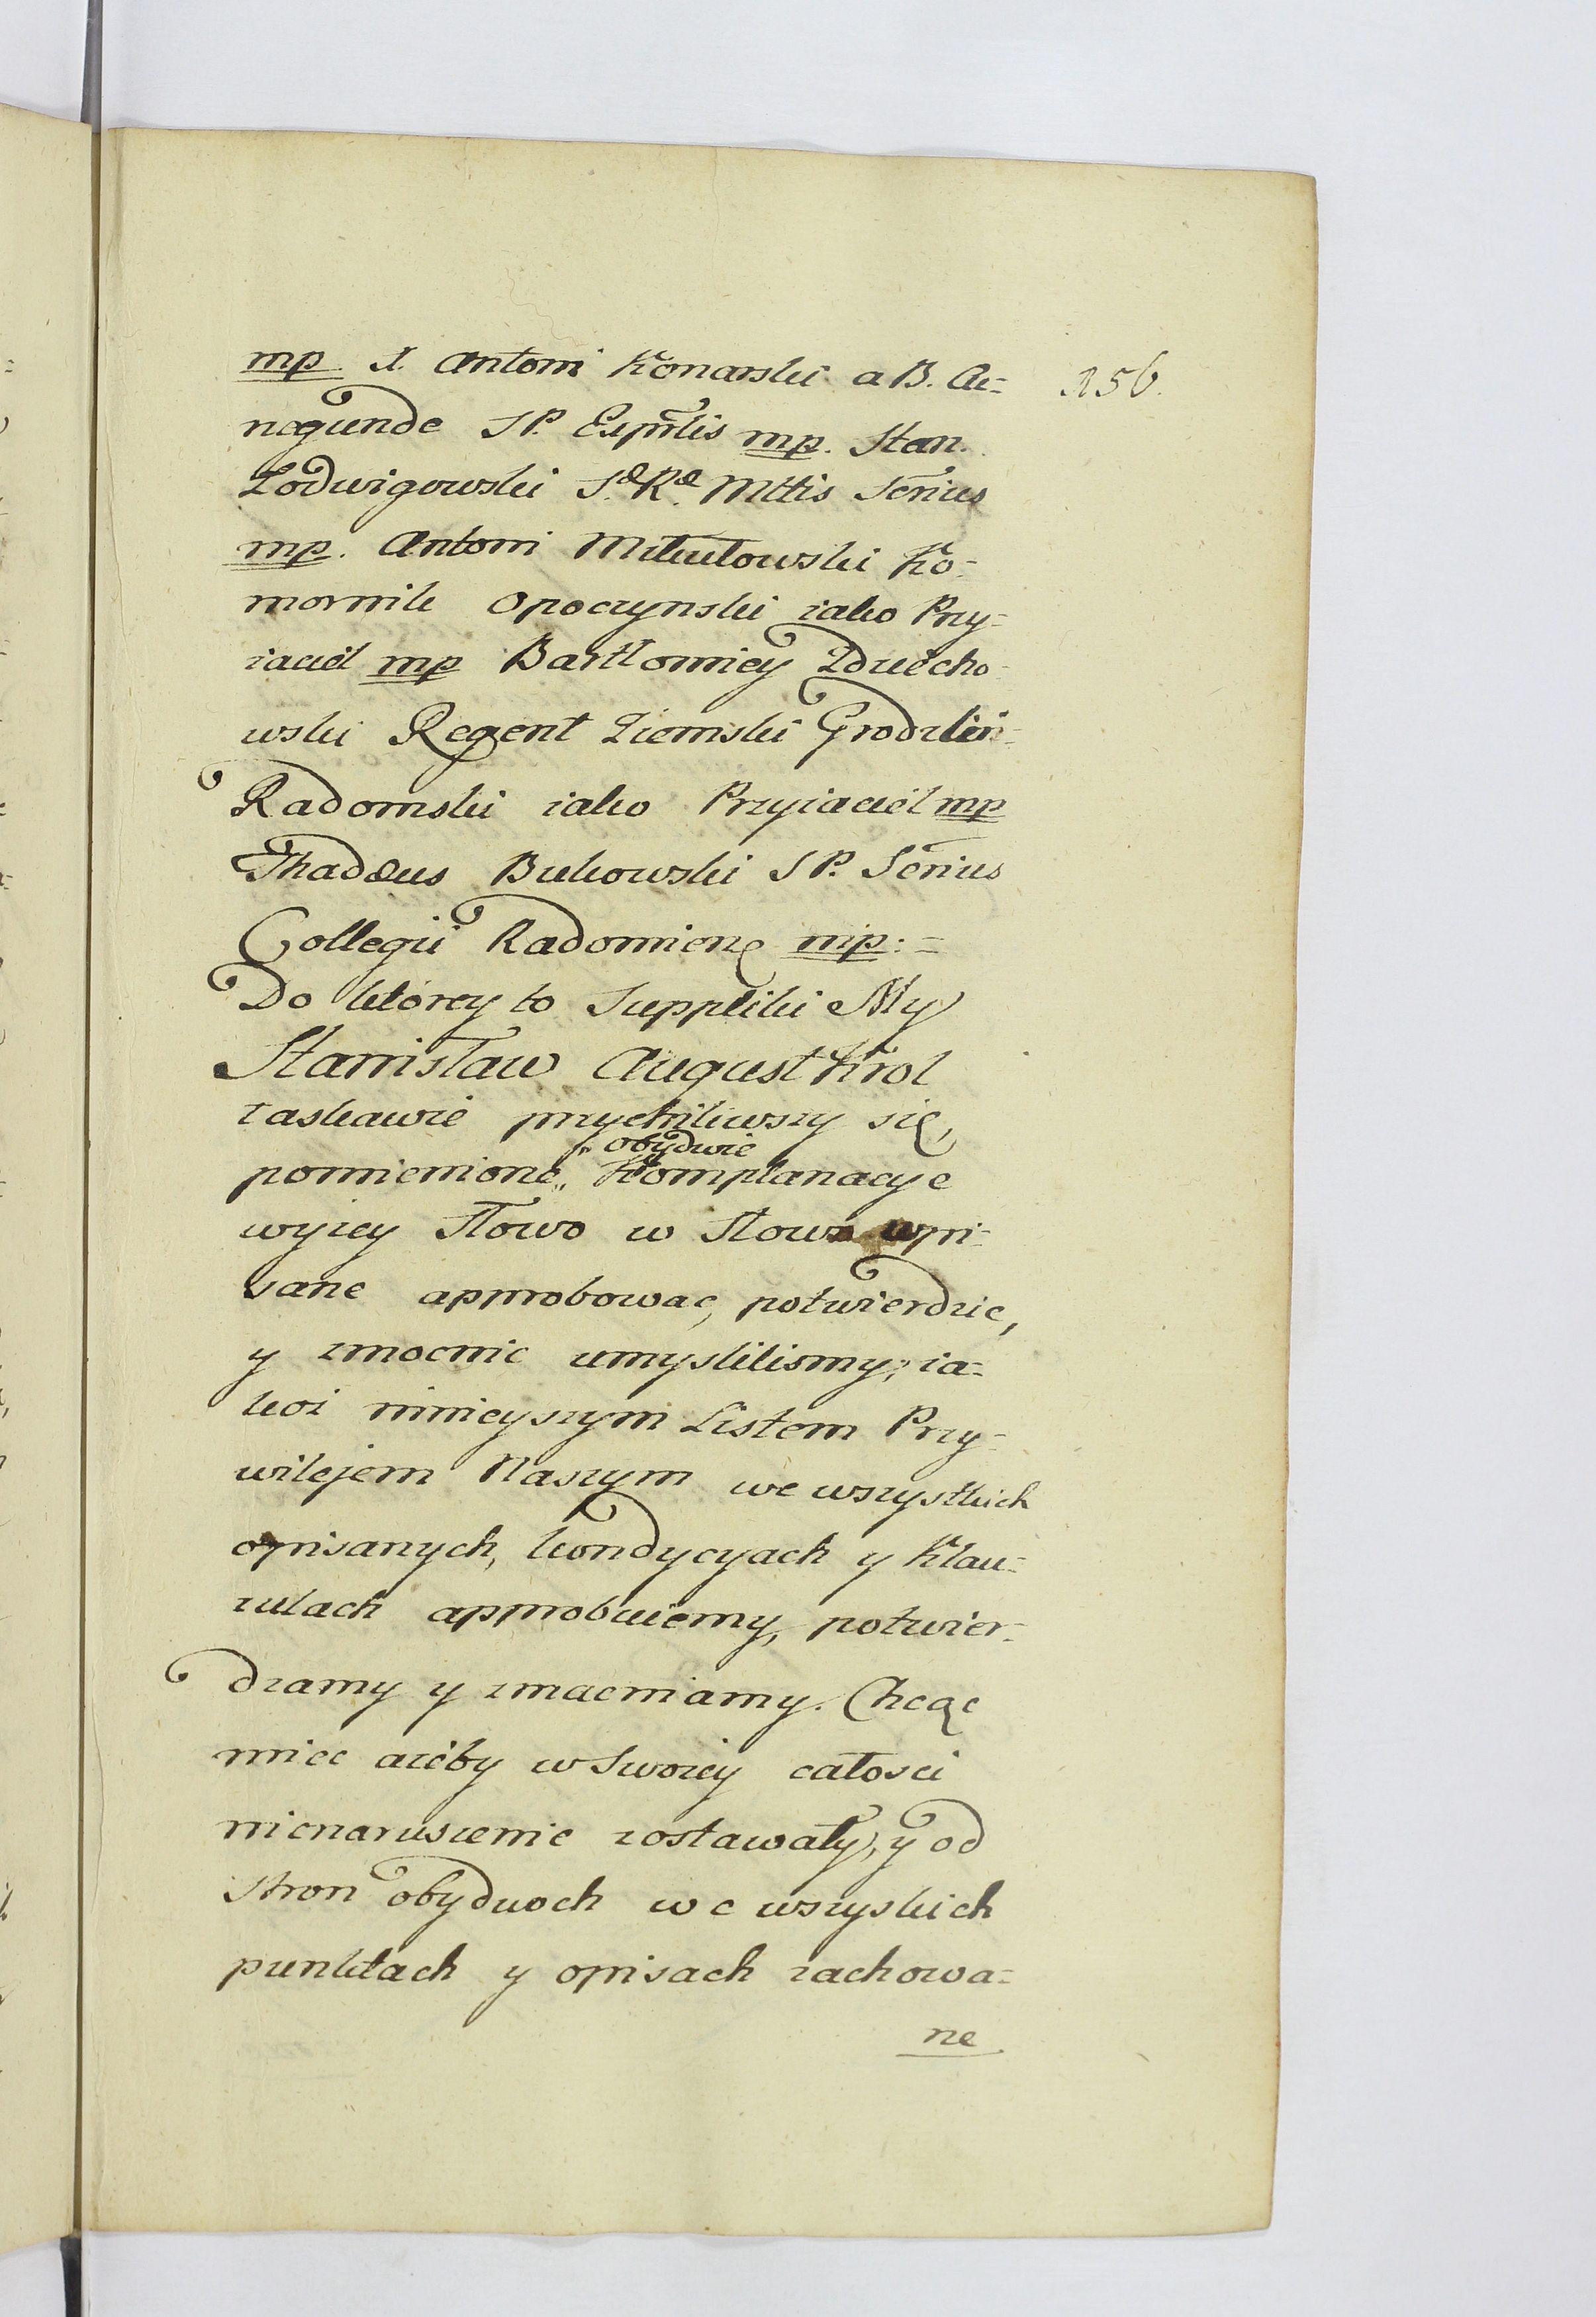 mp. X. Antoni Konarski a B. Cu=
negunde S P. Exprlis mp. Stan.
Lodwigowski S.ae R.ae Mttis Serius
mp. Antoni Mikułowski Ko=
mornik Opoczynski iako Przy=
iaciel mp Bartłomiey Zdziecho
wski Regent Ziemski Grodzki
Radomski iako Przyiaciel mp
Thaddeus Bukowski S P. Serius
Collegii Radomien mp: =
Do ktorey to Suppliki My
Stanisław August Krol
łaskawie przychiliwszy się,
pomienione „ obydwie Komplanacye
wyzey Słowo w Słowo wpi=
sane approbowac, potwierdzic,
y zmocnic umyslilismy; ia=
koz ninieyszym Listem Przy=
wilejem Naszym we wszystkich
opisanych, kondycyach y Klau=
zulach approbuiemy, potwier=
dzamy y zmacniamy. Chcąc
miec azeby w Swoiey całosci
nienaruszenie zostawały, y od
stron obydwoch we wszyskich
punktach y opisach zachowa=
ne
156.